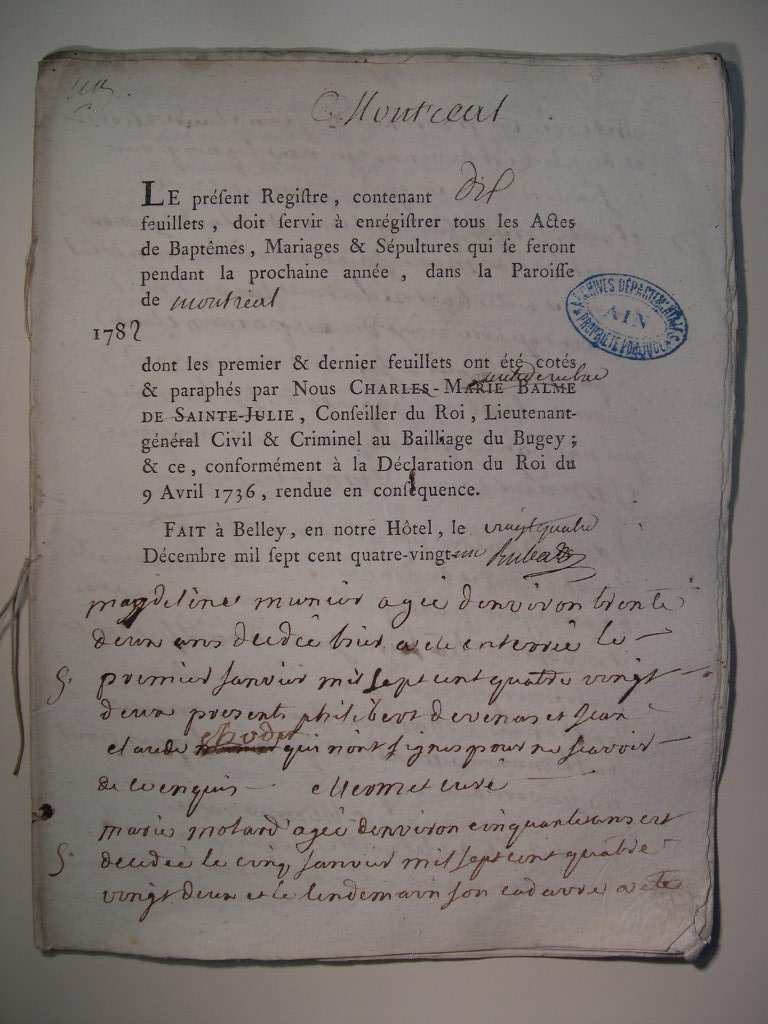 Montreal
LE préſent Regiſtre, contenant dix
feuillets, doit ſervir à enrégiſtrer tous les Actes
de Baptêmes, Mariages & Sépultures qui ſe feront
pendant la prochaine année, dans la Paroiſſe
de montreal
ARCHIVES DÉPARTEMENTALES
AIN
PROPRIÉTÉ PUBLIQUE
1782
dont les premier & dernier feuillets ont été cotés
& paraphés par Nous CHARLES-MARIE BALME
DE SAINTE-JULIE, Conſeiller du Roi, Lieutenant-
général Civil & Criminel au Bailliage du Bugey;
& ce, conformément à la Déclaration du Roi du
9 Avril 1736, rendue en conſéquence.
FAIT à Belley, en notre Hôtel, le vingt quatre
Décembre mil ſept cent quatre-vingt-un
magdeleine munier agée denviron trente
deux ans decedée hier a ete enterrée le
S. premier janvier mil sept cent quatre vingt
deux presents philibert devenas et jean
claude qui n'ont signes pour ne scavoir
de ce enquis curé
marie molard agée denviron cinquante ans est
S. decedée le cinq janvier mil sept cent quatre
vingt deux et le lendemain son cadavre a ete